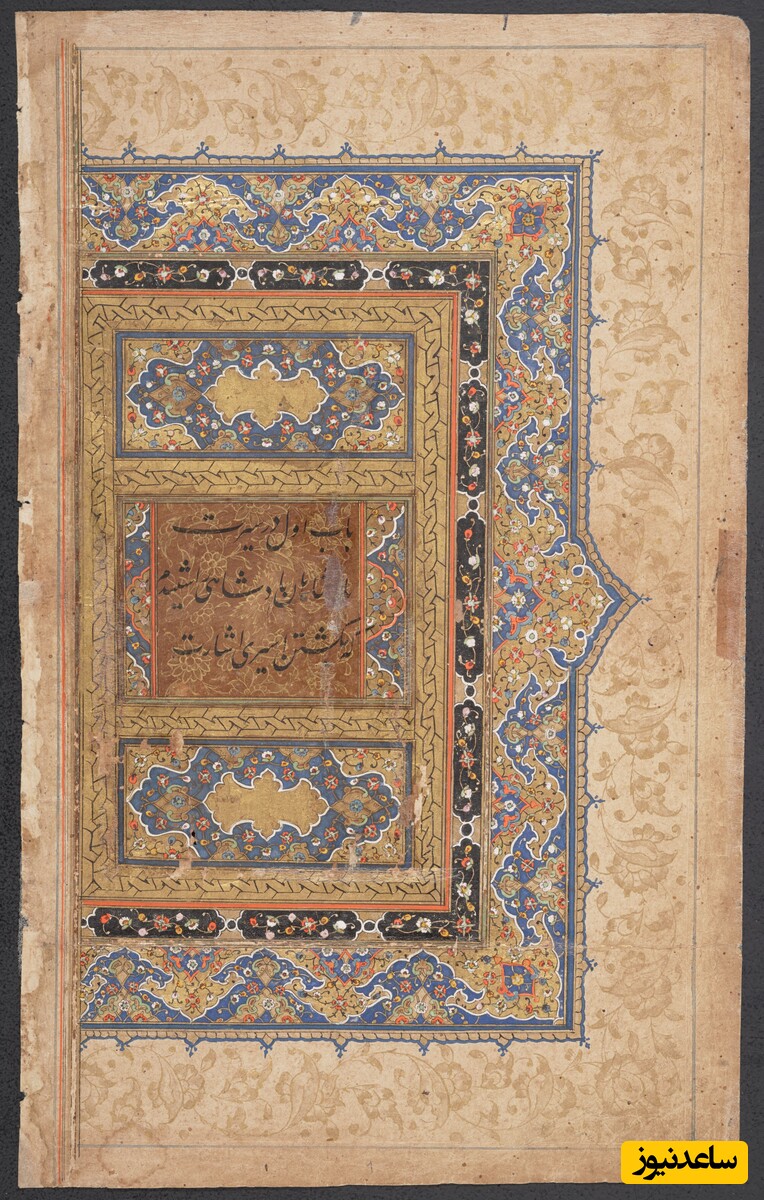 باب اول در سیرت
پادشاهان پادشاهی را شنیدم
که بکشتن اسیری اشارت
ساعدنیوز